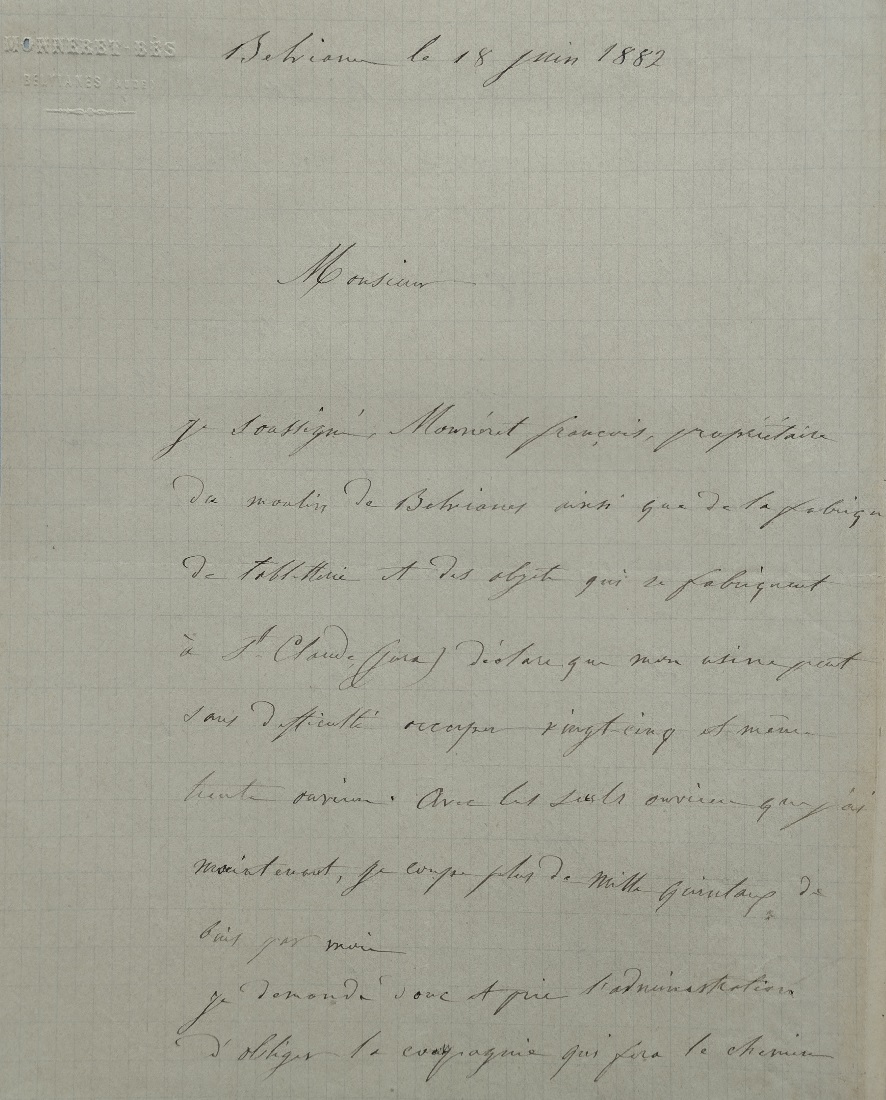 MONNERET-BÈS
BELVIANES (AUDE)
Belvianes le 18 juin 1882
Monsieur
je soussigné, Monnéret françois, propriétaire
du moulin de Belvianes ainsi que de la fabrique
de tabletterie et des objets qui se fabriquent
à St Claude (jura) déclare que mon usine peut
sans difficulté occuper vingt-cinq et même
trente ouvriers. Avec les seuls ouvriers que j'ai
maintenant, je coupe plus de mille quintaux de
buis par mois
je demande donc et prie l'administration
d'obliger la compagnie qui fera le chemin